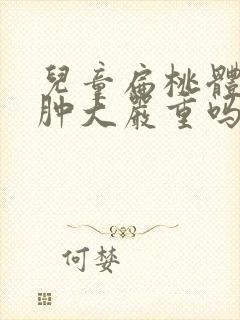 兒童扁桃體
肿大嚴重吗
何婪